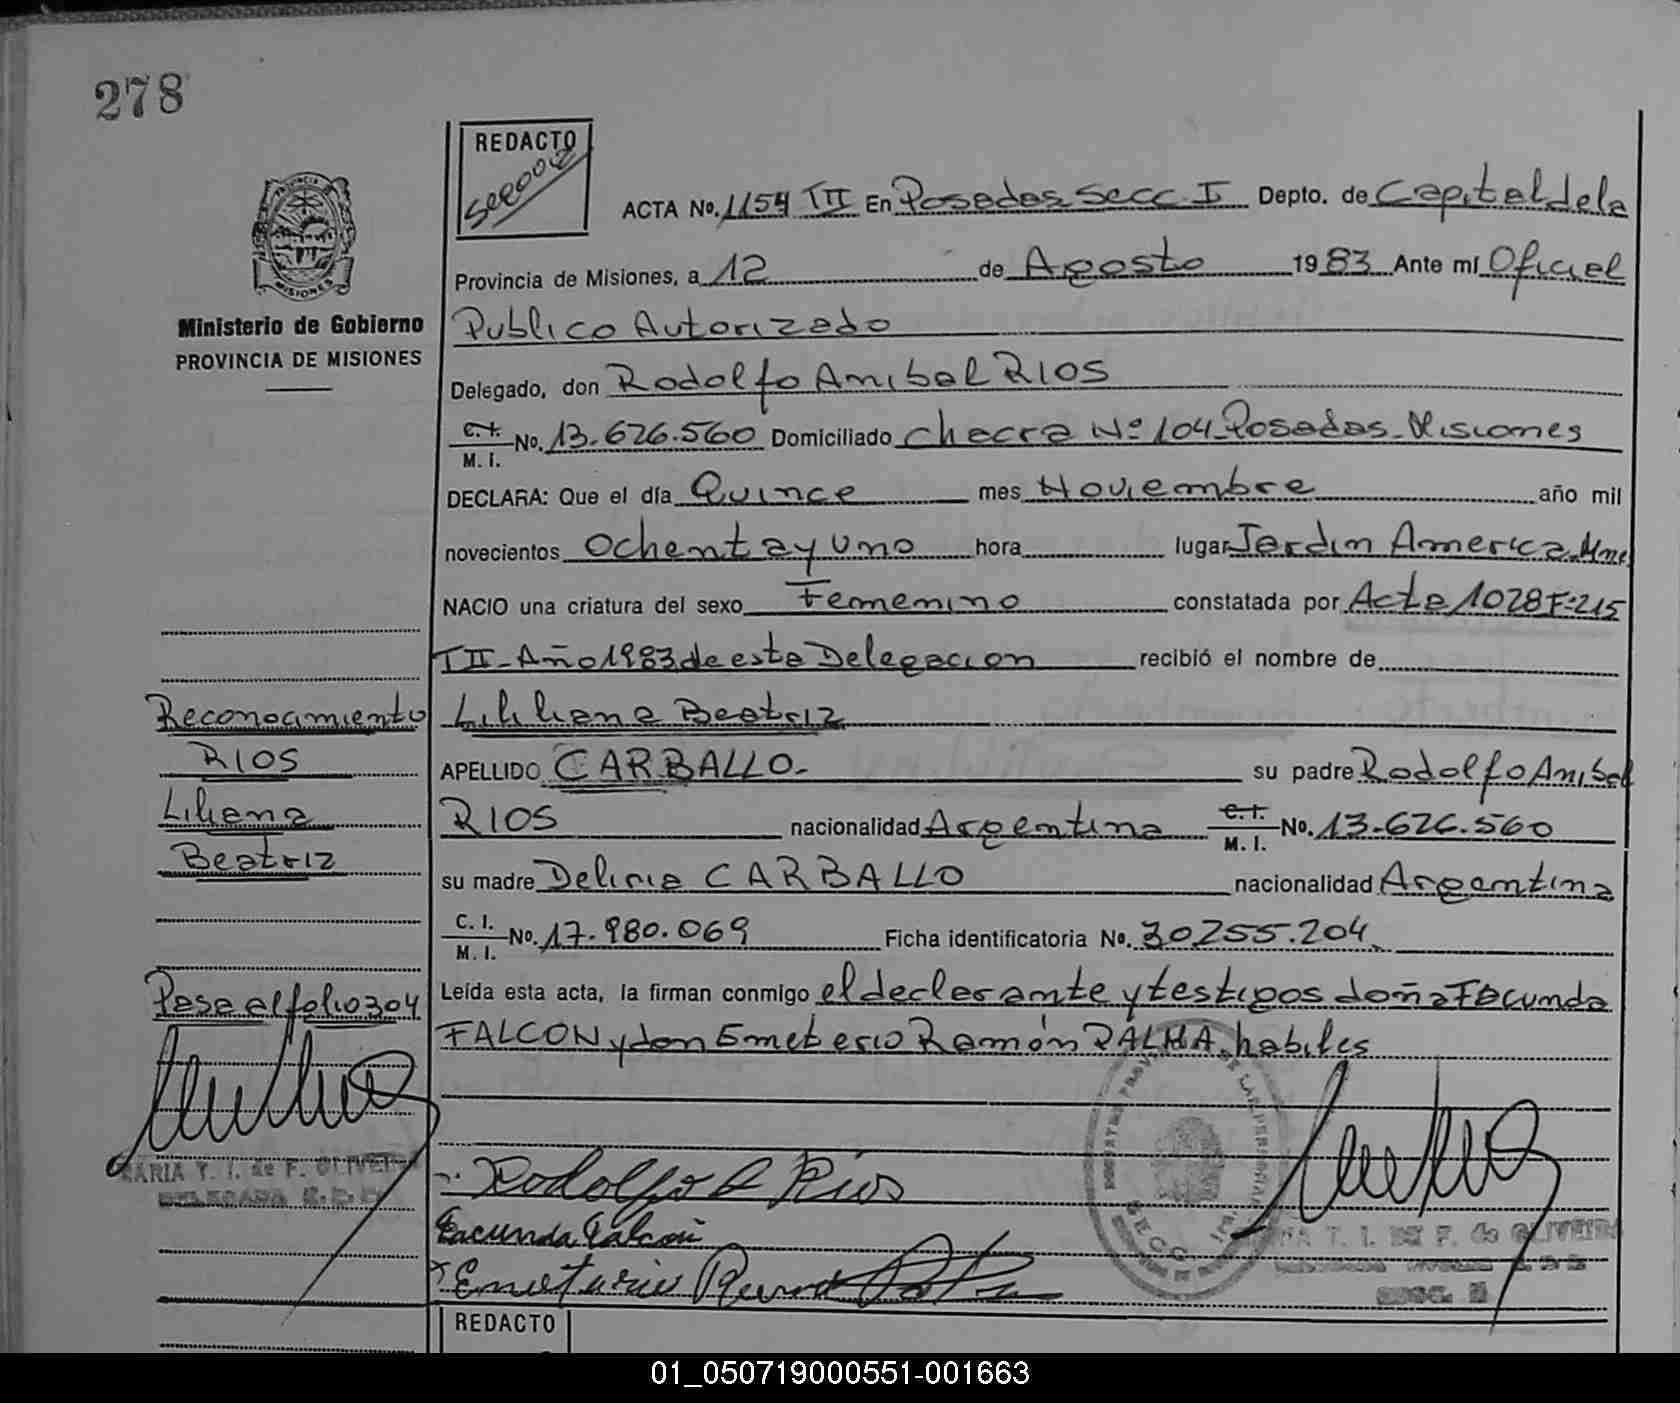 278
REDACTO
ACTA No. 1154 TII En Posadas Secc. I Depto. de Capital de la
Provincia de Misiones, a 12 de Agosto 1983 Ante mí Oficial
MISIONES
Ministerio de Gobierno
PROVINCIA DE MISIONES
Publico Autorizado
Delegado, don Rodolfo Anibal RIOS
C.I. M.I. No. 13.626.560 Domiciliado chacra Nº 104 Posadas - Misiones
DECLARA: Que el día Quince mes Noviembre año mil
novecientos Ochenta y Uno hora lugar Jardin America Mnes
NACIO una criatura del sexo Femenino constatada por Acta 1028 Fº 215
TII - Año 1983 de esta Delegacion recibió el nombre de
Liliana Beatriz
APELLIDO CARBALLO.- su padre Rodolfo Anibal
RIOS nacionalidad Argentina C.I. M.I. No. 13.626.560
su madre Delicia CARBALLO nacionalidad Argentina
C.I. M.I. No. 17.980.069 Ficha identificatoria No. 30255.204
Leída esta acta, la firman conmigo el declarante y testigos doña Facunda
FALCON y don Emeterio Ramón PALMA, habiles
Reconocimiento
RIOS
Liliana
Beatriz
Pasa al folio 304
MARIA T. I. de F. OLIVEIRA
DELEGADA
Rodolfo A Rios
Facunda Falcon
T. I. DE F. de OLIVEIRA
SECC.
REDACTO
01_050719000551-001663